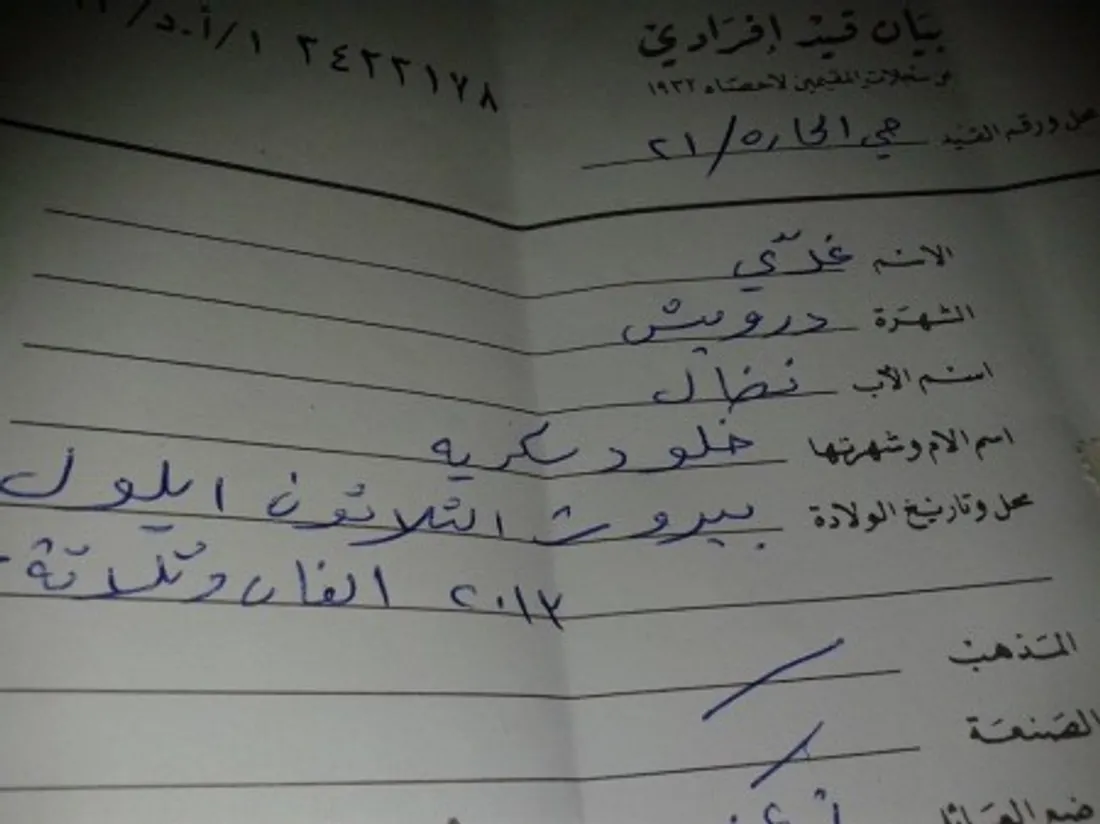 بيان قيد إفرادي
٢٤٢٢١٧٨ ١/أ.د/
عن سجلات المقيمين لاحصاء ١٩٣٢
محل ورقم القيد حي الحاره/٢١
الاسم غدّي
الشهرة درويش
اسم الأب نضال
اسم الام وشهرتها خلود سكريه
محل وتاريخ الولادة بيروت الثلاثون ايلول
٢٠١٣ الفان وثلاثة
المذهب
الصنعة